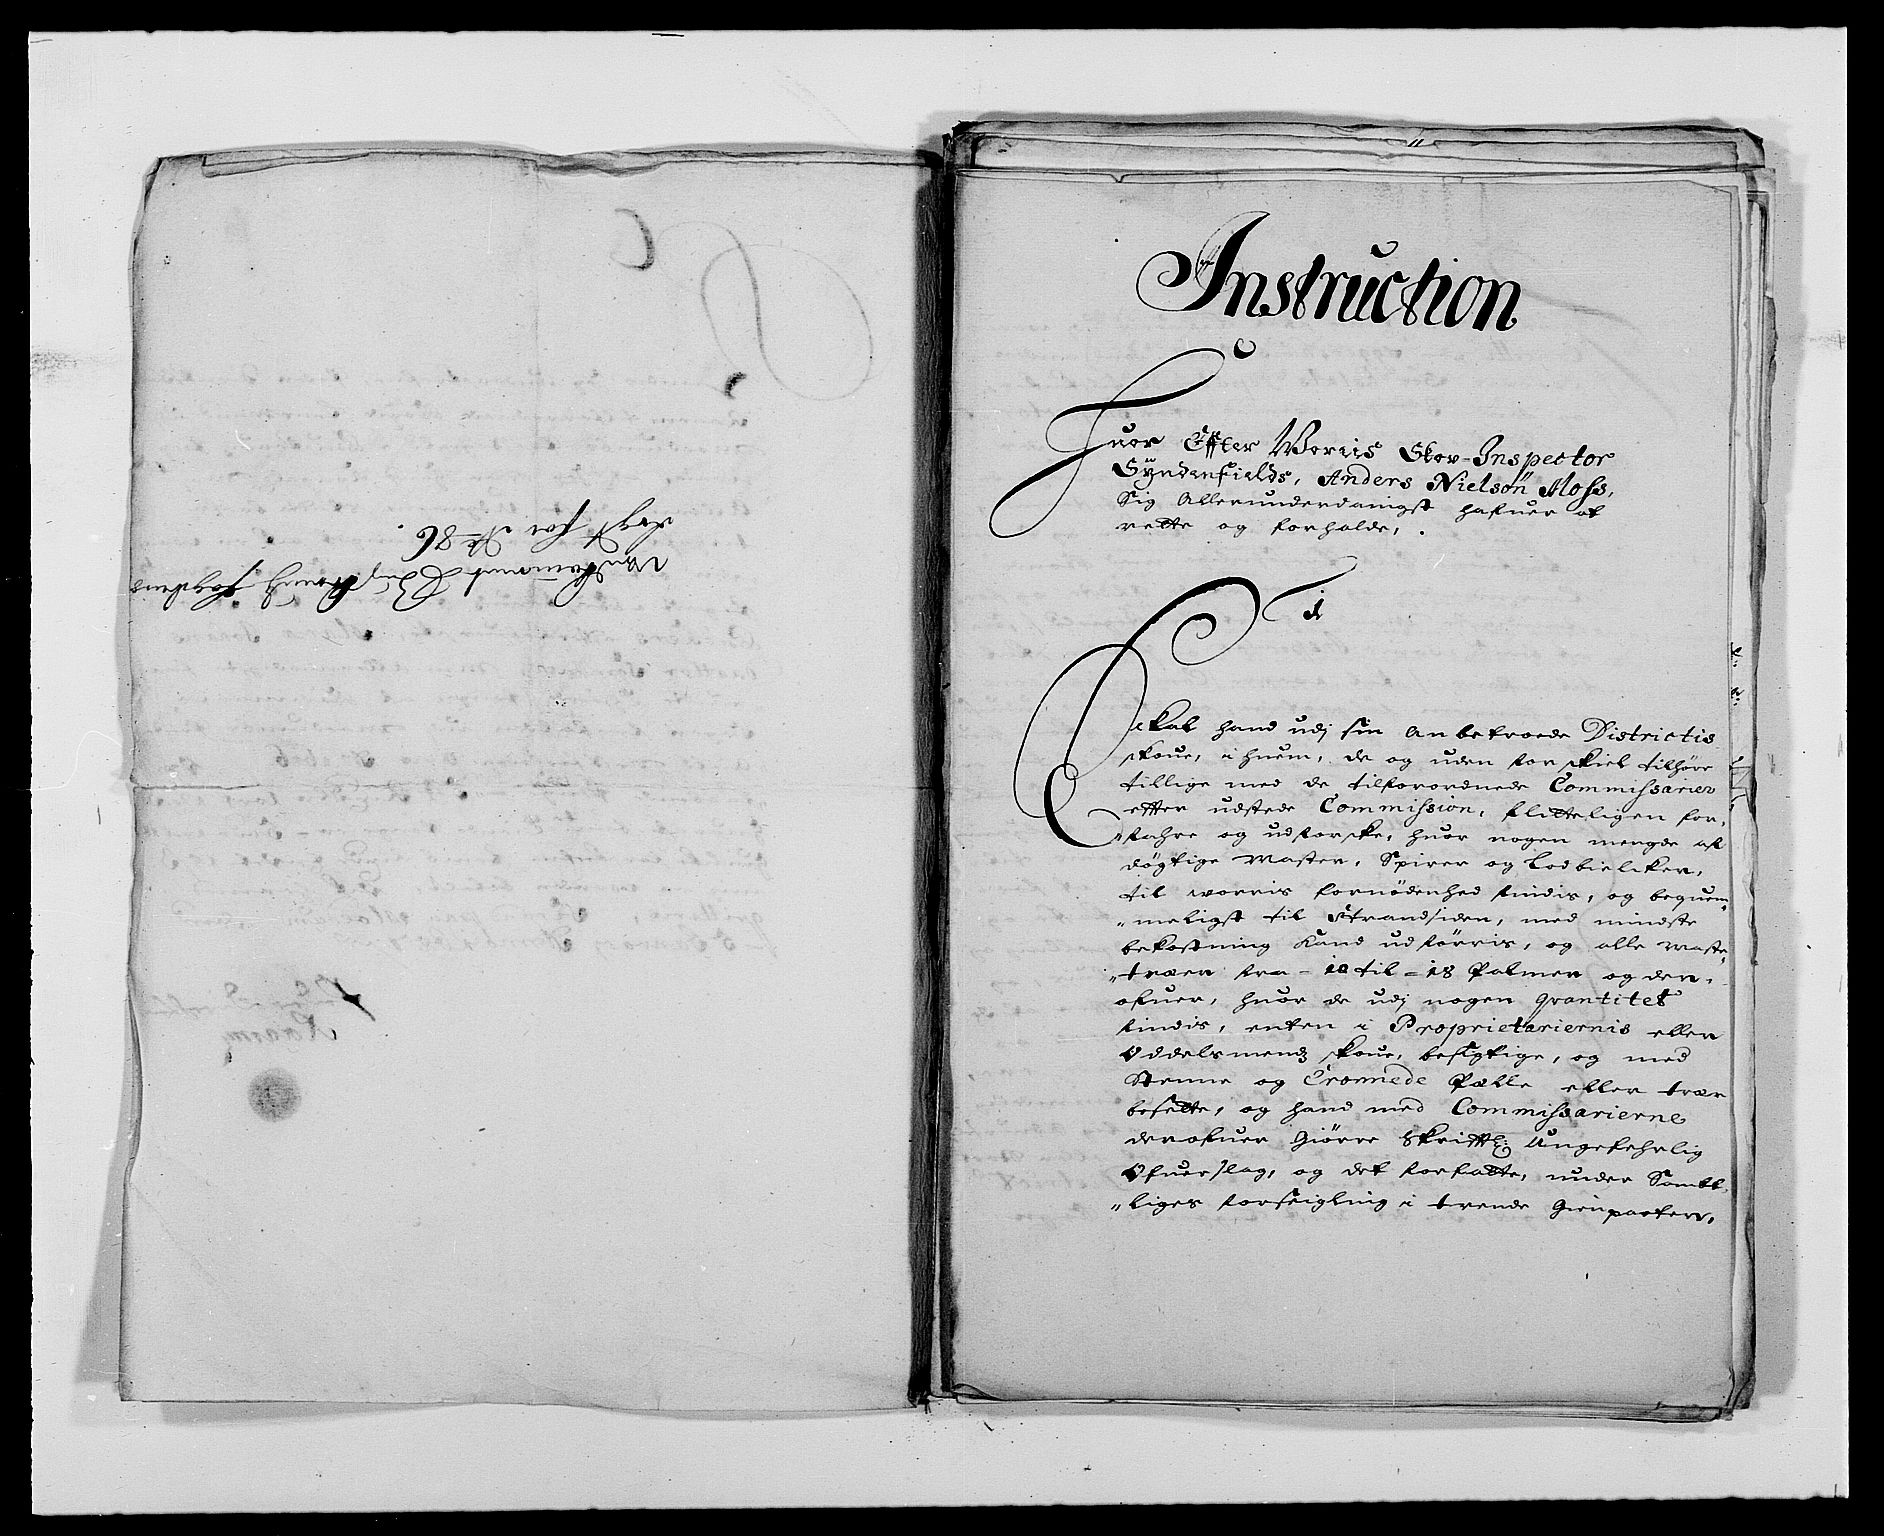 Instruction
Huor Effter Worris Skov-Inspector
Syndenfields, Anders Nielsøn Moss,
Sig Allerunderdanigst hafuer at
rette og forholde,
1
Skal hand udj sin anbetroede Districtis
skoue, i huem, de og uden forskiel tilhöre
tillige med de tilforordnede Commissarier
effter udstede Commission, flitteligen for,
"fahre og udforske, huor nogen mengde af
døgtige Master, Spirer og Lodbielcker,
til worris fornödenhed findis, og bequem"
"meligst til Strandsiden, med mindste
bekostning kand udförris, og alle maste"
"træer fra - 10 til - 18 Palmer og der,
ofuer, huor de udj nogen quantitet
findis, enten i Proprietariernis eller
Oddelsmends skoue, besigtige, og med
Stenne og Cronnede Pælle eller trær
besette, og hand med Commissarierne
derofuer Giörre Skriftl: Ungefehrlig
Ofuerslag, og det forfatte, under Samtl,
"liges forseigling i trende Gienparter,
No 86